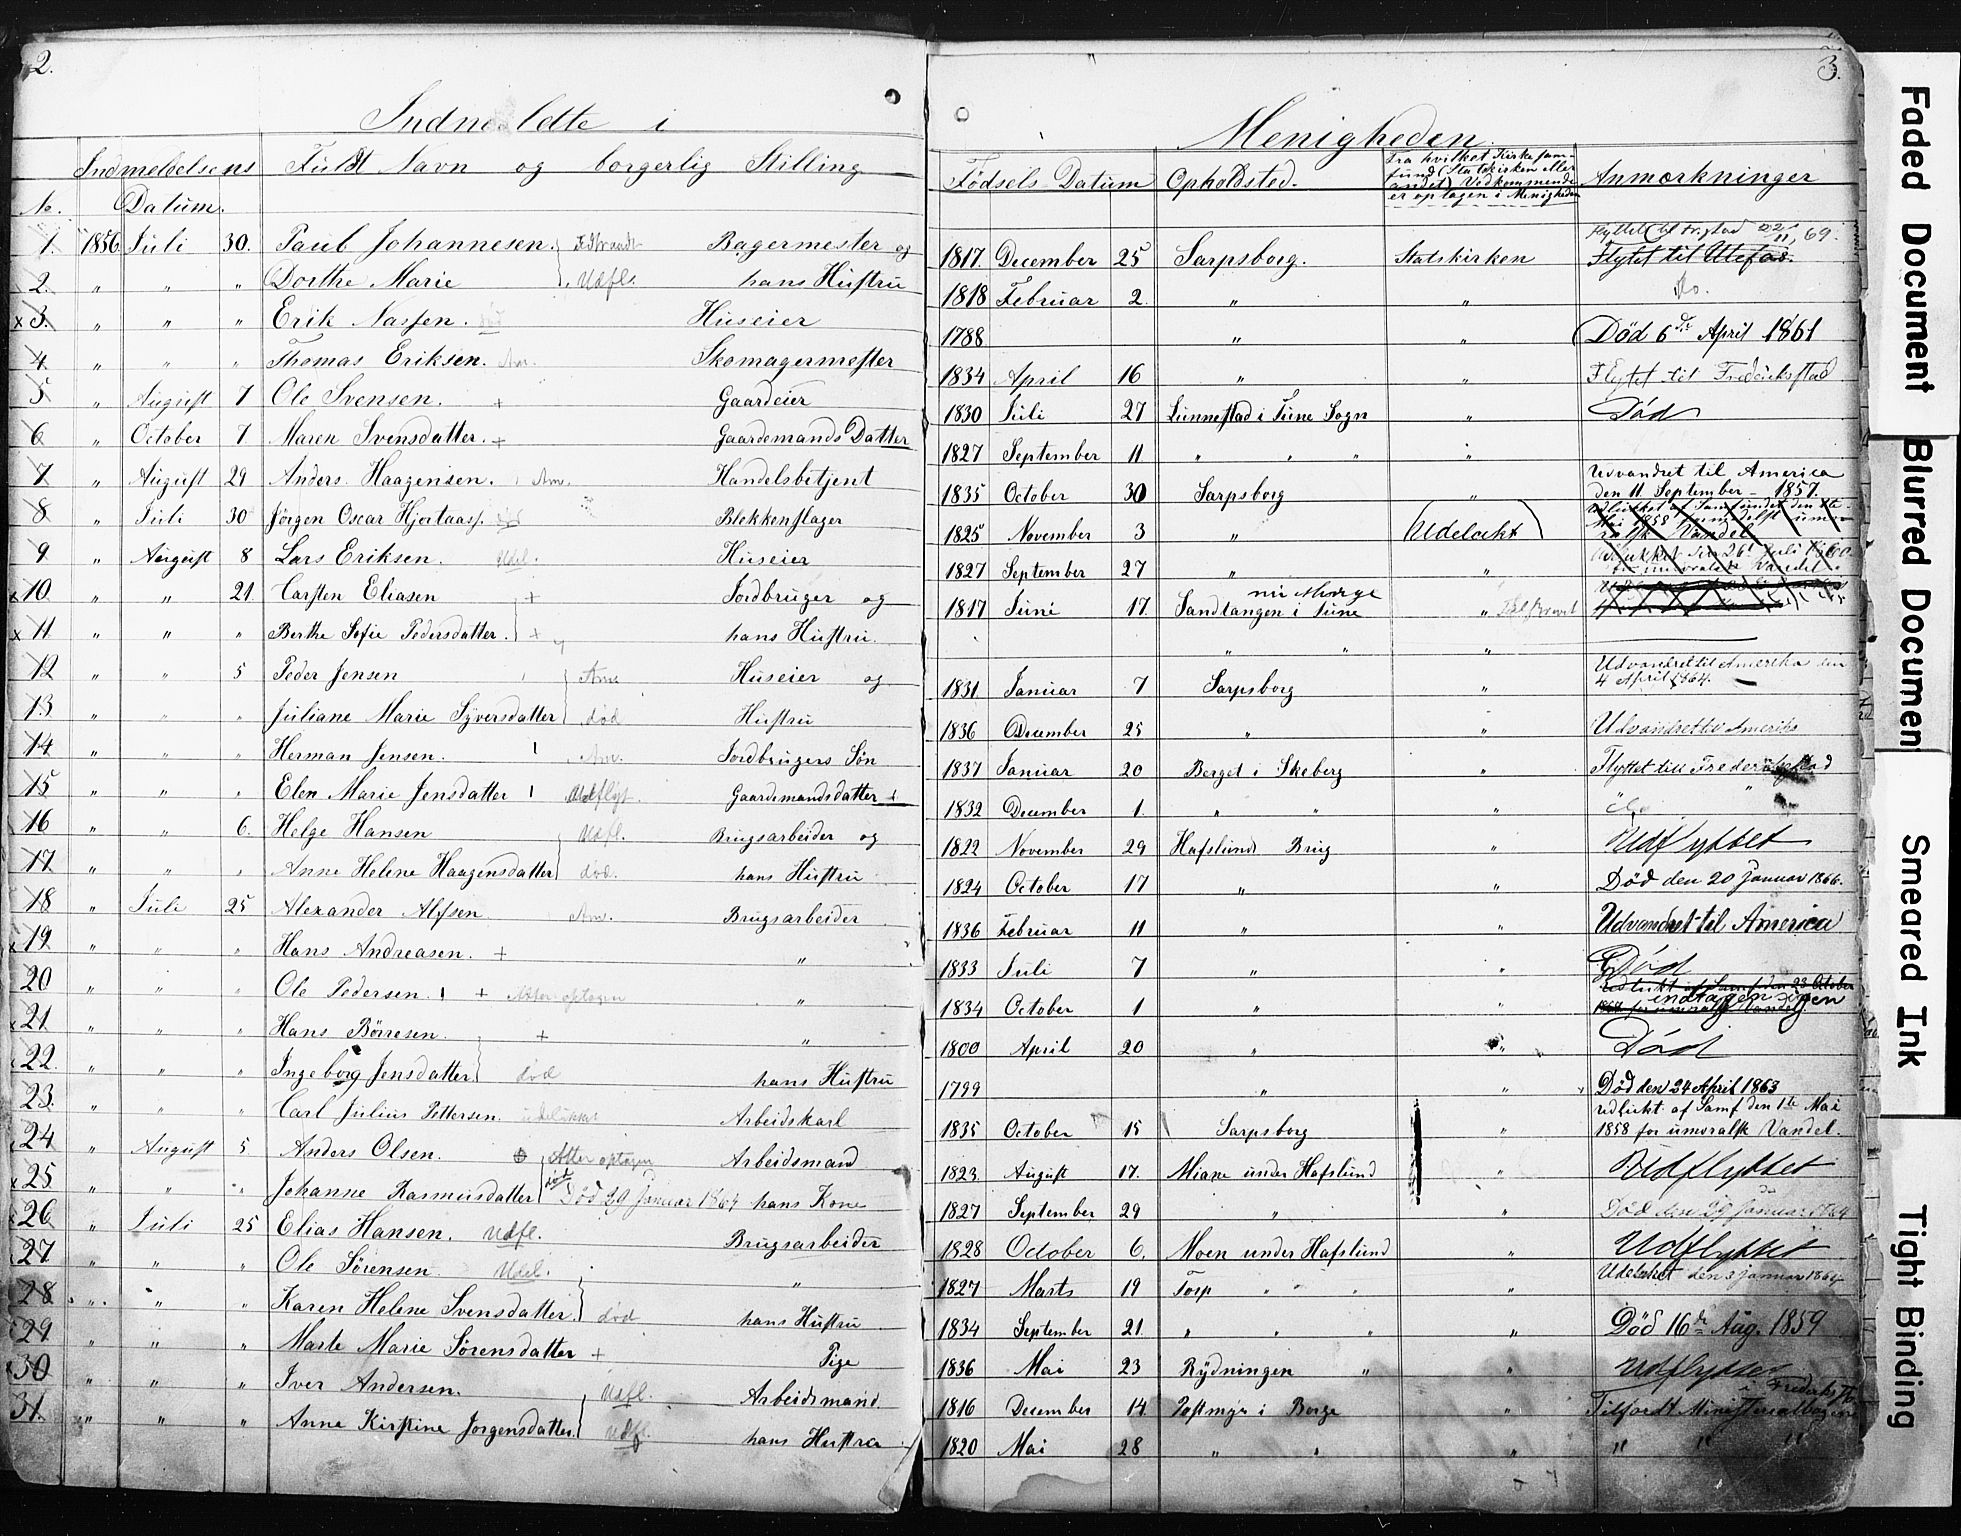 2.
Indmeldte i
Indmeldelsens Fuldt Navn og borgerlig Stilling
No. Datum.
1. 1856 Juli 30. Paul Johannesen. Bagermester og
2. " " " Dorthe Marie Udfl. hans Hustru
x 3. " " " Erik Nassen. død Huseier
4 " " " Thomas Eriksen. Am. Skomagermester
5 " August 7 Ole Svensen. + Gaardeier
6 " October 7 Maren Svensdatter. + Gaardemands Datter
7 " August 29 Anders Haagensen. Am. Handelsbetjent
8 " Juli 30 Jørgen Oscar Hjortaas. Blekkenslager
9 " August 8 Lars Eriksen. Udel. Huseier
x 10. " " 21. Carsten Eliasen + Jordbruger og
x 11. " " " Berthe Sofie Pedersdatter. + hans Hustru.
12 " " 5 Peder Jensen Am. Huseier og
13 " " " Juliane Marie Syversdatter død Hustru
14 " " " Herman Jensen. Am. Jordbrugers Søn
15 " " " Elen Marie Jensdatter Udflyt. Gaardemandsdatter +
16 " " 6. Helge Hansen Udfl. Brugsarbeider og
17 " " " Anne Helene Haagensdatter død. hans Hustru
18 " Juli 25 Alexander Alfsen Am. Brugsarbeider
19 " " " Hans Andreasen. + "
20 " " " Ole Pedersen. + Atter optagen "
21 " " " Hans Børresen. + "
22 " " " Ingeborg Jensdatter død hans Hustru
23. " " " Carl Julius Pettersen. udelukket Arbeidskarl
24 " August 5 Anders Olsen. Atter optagen Arbeidsmand
25 " " " Johanne Rasmusdatter Død 29 Januar 1864 hans Kone
26 " Juli 25 Elias Hansen. Udfl. Brugsarbeider
27 " " " Ole Sørensen. Udel. "
28 " " " Karen Helene Svensdatter død hans Hustru
29 " " " Marte Marie Sørensdatter + Pige
30 " " " Iver Andersen. Udfl. Arbeidsmand
31. " " " Anne Kirstine Jørgensdatter. Udfl. hans Hustru
3.
Menigheden
Fødsels Datum Opholdsted. Fra hvilket Kirkesamfund (Statskirken eller andet) Vedkommende er optagen i Menigheden Anmærkninger
Flyttet til Fr.stad 22/11, 69.
1817. December 25 Sarpsborg. Statskirken Flytet til
1818 Februar 2. " " do.
1788 " " Død 6te April 1861
1834 April 16 " " Flytet til Frederikstad
1830 Juli 27 Lunnestad i Tune Sogn " Død
1827 September 11 " " " "
1835 October 30 Sarpsborg " Udvandret til America
den 11 September 1857.
1825 November 3 " Udelukt
1827 September 27 " "
1817 Juni 17. Sandtangen i Tune "
" " "
1831. Januar 7 Sarpsborg " Udvandret til Amerika den
4 April 1864.
1836 December 25 " " Udvandret til Amerika
1837 Januar 20 Berget i Skeberg " Flyttet till Frederikstad
1832 December 1. " " "
1822 November 29 Hafslunds Brug " Udflyttet
1824 October 17 " " Død den 20 Januar 1866.
1836 Februar 11 " " Udvandret til America
1833 Juli 7 " " Død
1834 October 1 " " Udelukt af Samf den 23 October
indtagen igen
1800 April 20 " " Død
1799 " " Død den 24 April 1863
1835 October 15 Sarpsborg " Udelukt af Samf den 1te Mai
1858 for umoralsk Vandel.
1823. August 17. Miane under Hafslund " Udflyttet
1827 September 29 " " Død den 29 Januar 1864
1828 October 6. Moen under Hafslund " Udflyttet
1827 Marts 19 Torp " " " Udelukket den 3 Januar 1864
1834 September 21. " " " " Død 16de Aug. 1859
1836 Mai 23 Rydningen " " Udflyttet
1816 December 14. Postmyr i Borge " Tilført Ministerialbogen
1820 Mai 28 " " " " " "
Faded Document
Blurred Document
Smeared Ink
Tight Binding